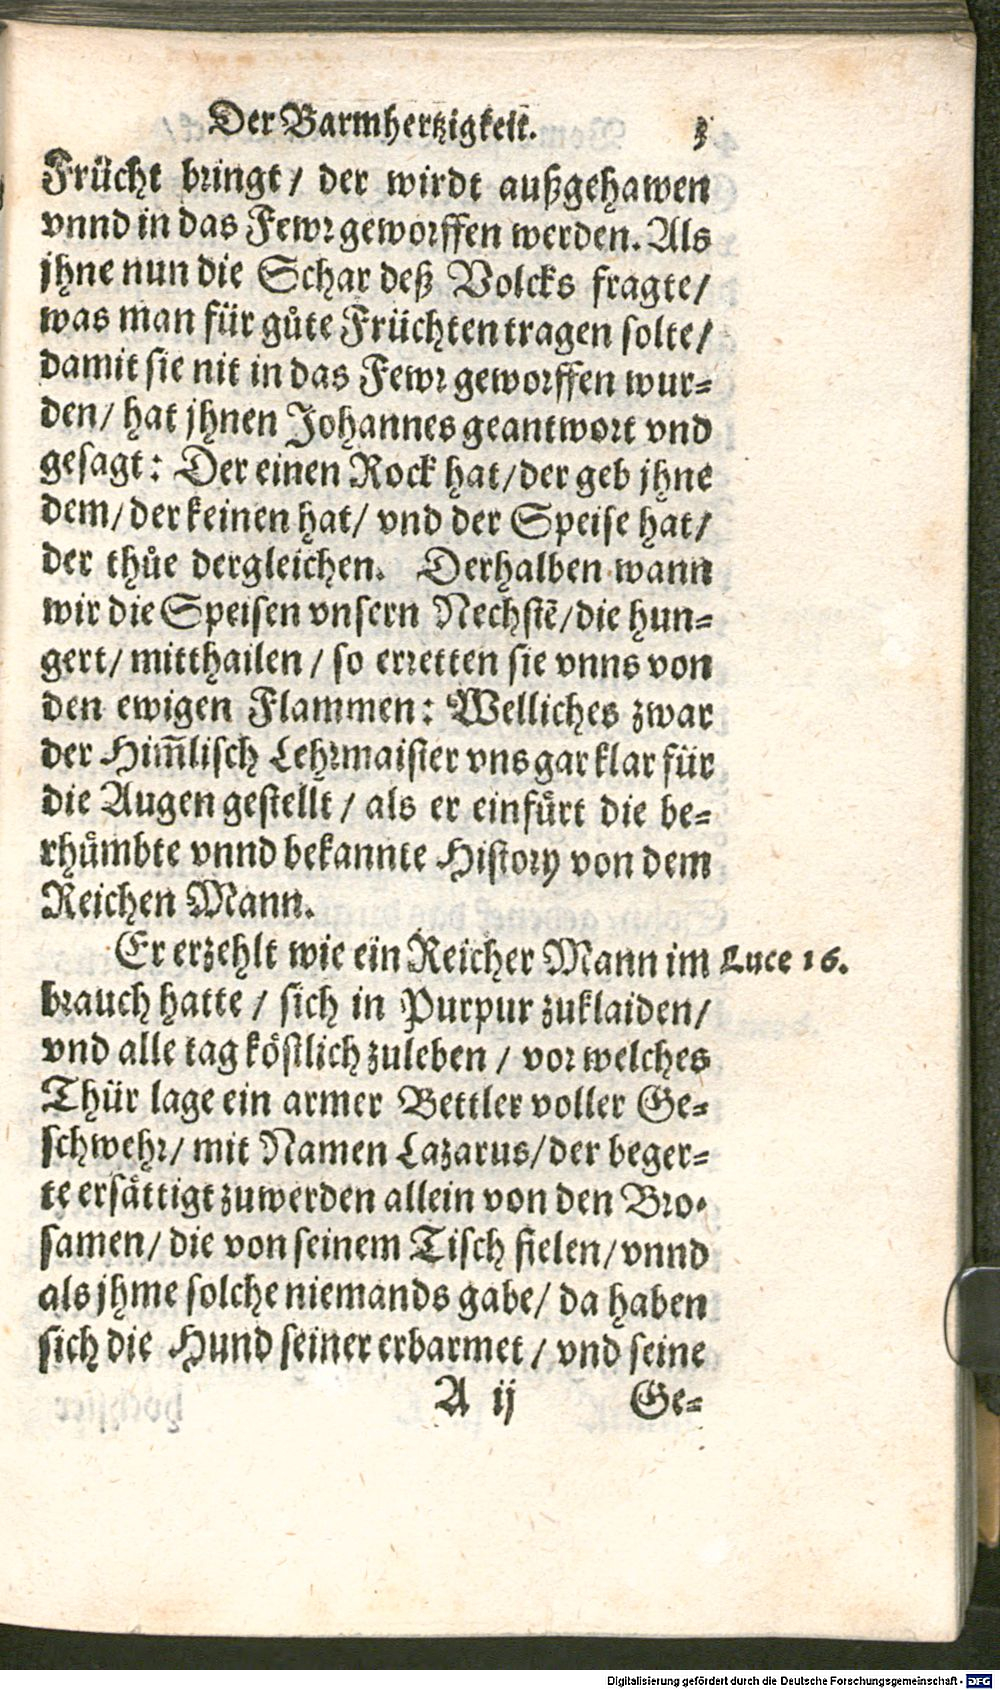 Der Barmhertzigkeit. 3
Frücht bringt / der wirdt außgehawen
vnnd in das Fewr geworffen werden. Als
jhne nun die Schar deß Volcks fragte/
was man für gůte Früchten tragen solte/
damit sie nit in das Fewr geworffen wur-
den/ hat jhnen Johannes geantwort vnd
gesagt: Der einen Rock hat/ der geb jhne
dem/ der keinen hat/ vnd der Speise hat/
der thůe dergleichen. Derhalben wann
wir die Speisen vnsern Nechstē/ die hun-
gert/ mitthailen / so erretten sie vnns von
den ewigen Flammen: Welliches zwar
der Him̄lisch Lehrmaister vns gar klar für
die Augen gestellt / als er einfůrt die be-
rhůmbte vnnd bekannte History von dem
Reichen Mann.
Er erzehlt wie ein Reicher Mann im Luce 16.
brauch hatte / sich in Purpur zuklaiden/
vnd alle tag köstlich zuleben / vor welches
Thür lage ein armer Bettler voller Ge-
schwehr/ mit Namen Lazarus/ der beger-
te ersättigt zuwerden allein von den Bro-
samen/ die von seinem Tisch fielen/ vnnd
als jhme solche niemands gabe/ da haben
sich die Hund seiner erbarmet / vnd seine
A ij Ge-
Digitalisierung gefördert durch die Deutsche Forschungsgemeinschaft - DFG